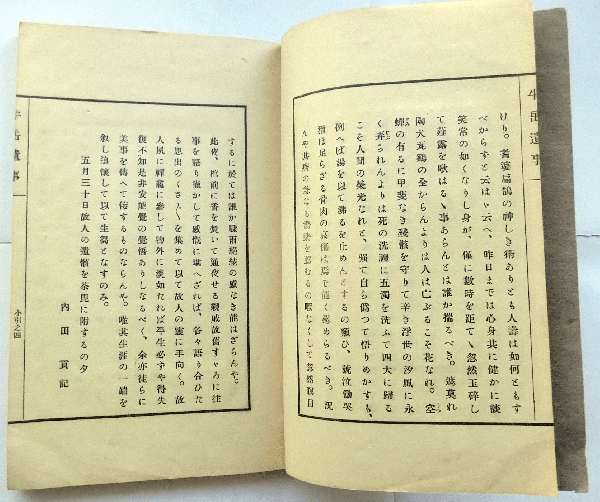 牛岳遺事
けり。耆婆扁鵲の神しき術ありとも人壽は如何ともす
べからずと云はゞ云へ、昨日までは心身共に健かに談
笑常の如くなりし身が、僅に數時を距てゝ忽然玉碎し
て薤露を歌はるゝ事あらんとは誰か揣るべき。遮莫れ
陶犬瓦鷄の全からんよりは人は亡ぶるこそ花なれ。空
蟬の有るに甲斐なき殘骸を守りて辛き浮世の汐風に永
く弄られんよりは死の洗滌に五濁を洗ふて四大に歸る
こそ人間の榮光なれと、强て自ら僞つて悟りめかすも、
例へば湯を以て沸るを止めんとするの類ひ、號泣慟哭
猶ほ足らざる骨肉の哀傷は爭で能く慰めらるべき。況
んや其病の
するに於ては誰か驟雨
の感なき能はざらんや。
此夜、棺前に香を焚いて通夜せる親戚故舊すゞろに往
事を語り進かして感慨に堪へざれば、各々語り合ひた
る思出のくさ〲を集めて以て故人の靈に手向く。故
人夙に禪籠に參して物外に淡如たれば平生必ずや得失
復不知是非安能覺の覺悟ありしなるべく、余亦徒らに
美事を傳へて侫するものならんや。唯其生涯の一端を
敍し追懷して以て生芻となすのみ。
五月三十日故人の遺骸を荼毘に附するの夕
內田 貢記
牛岳遺事
小引之四